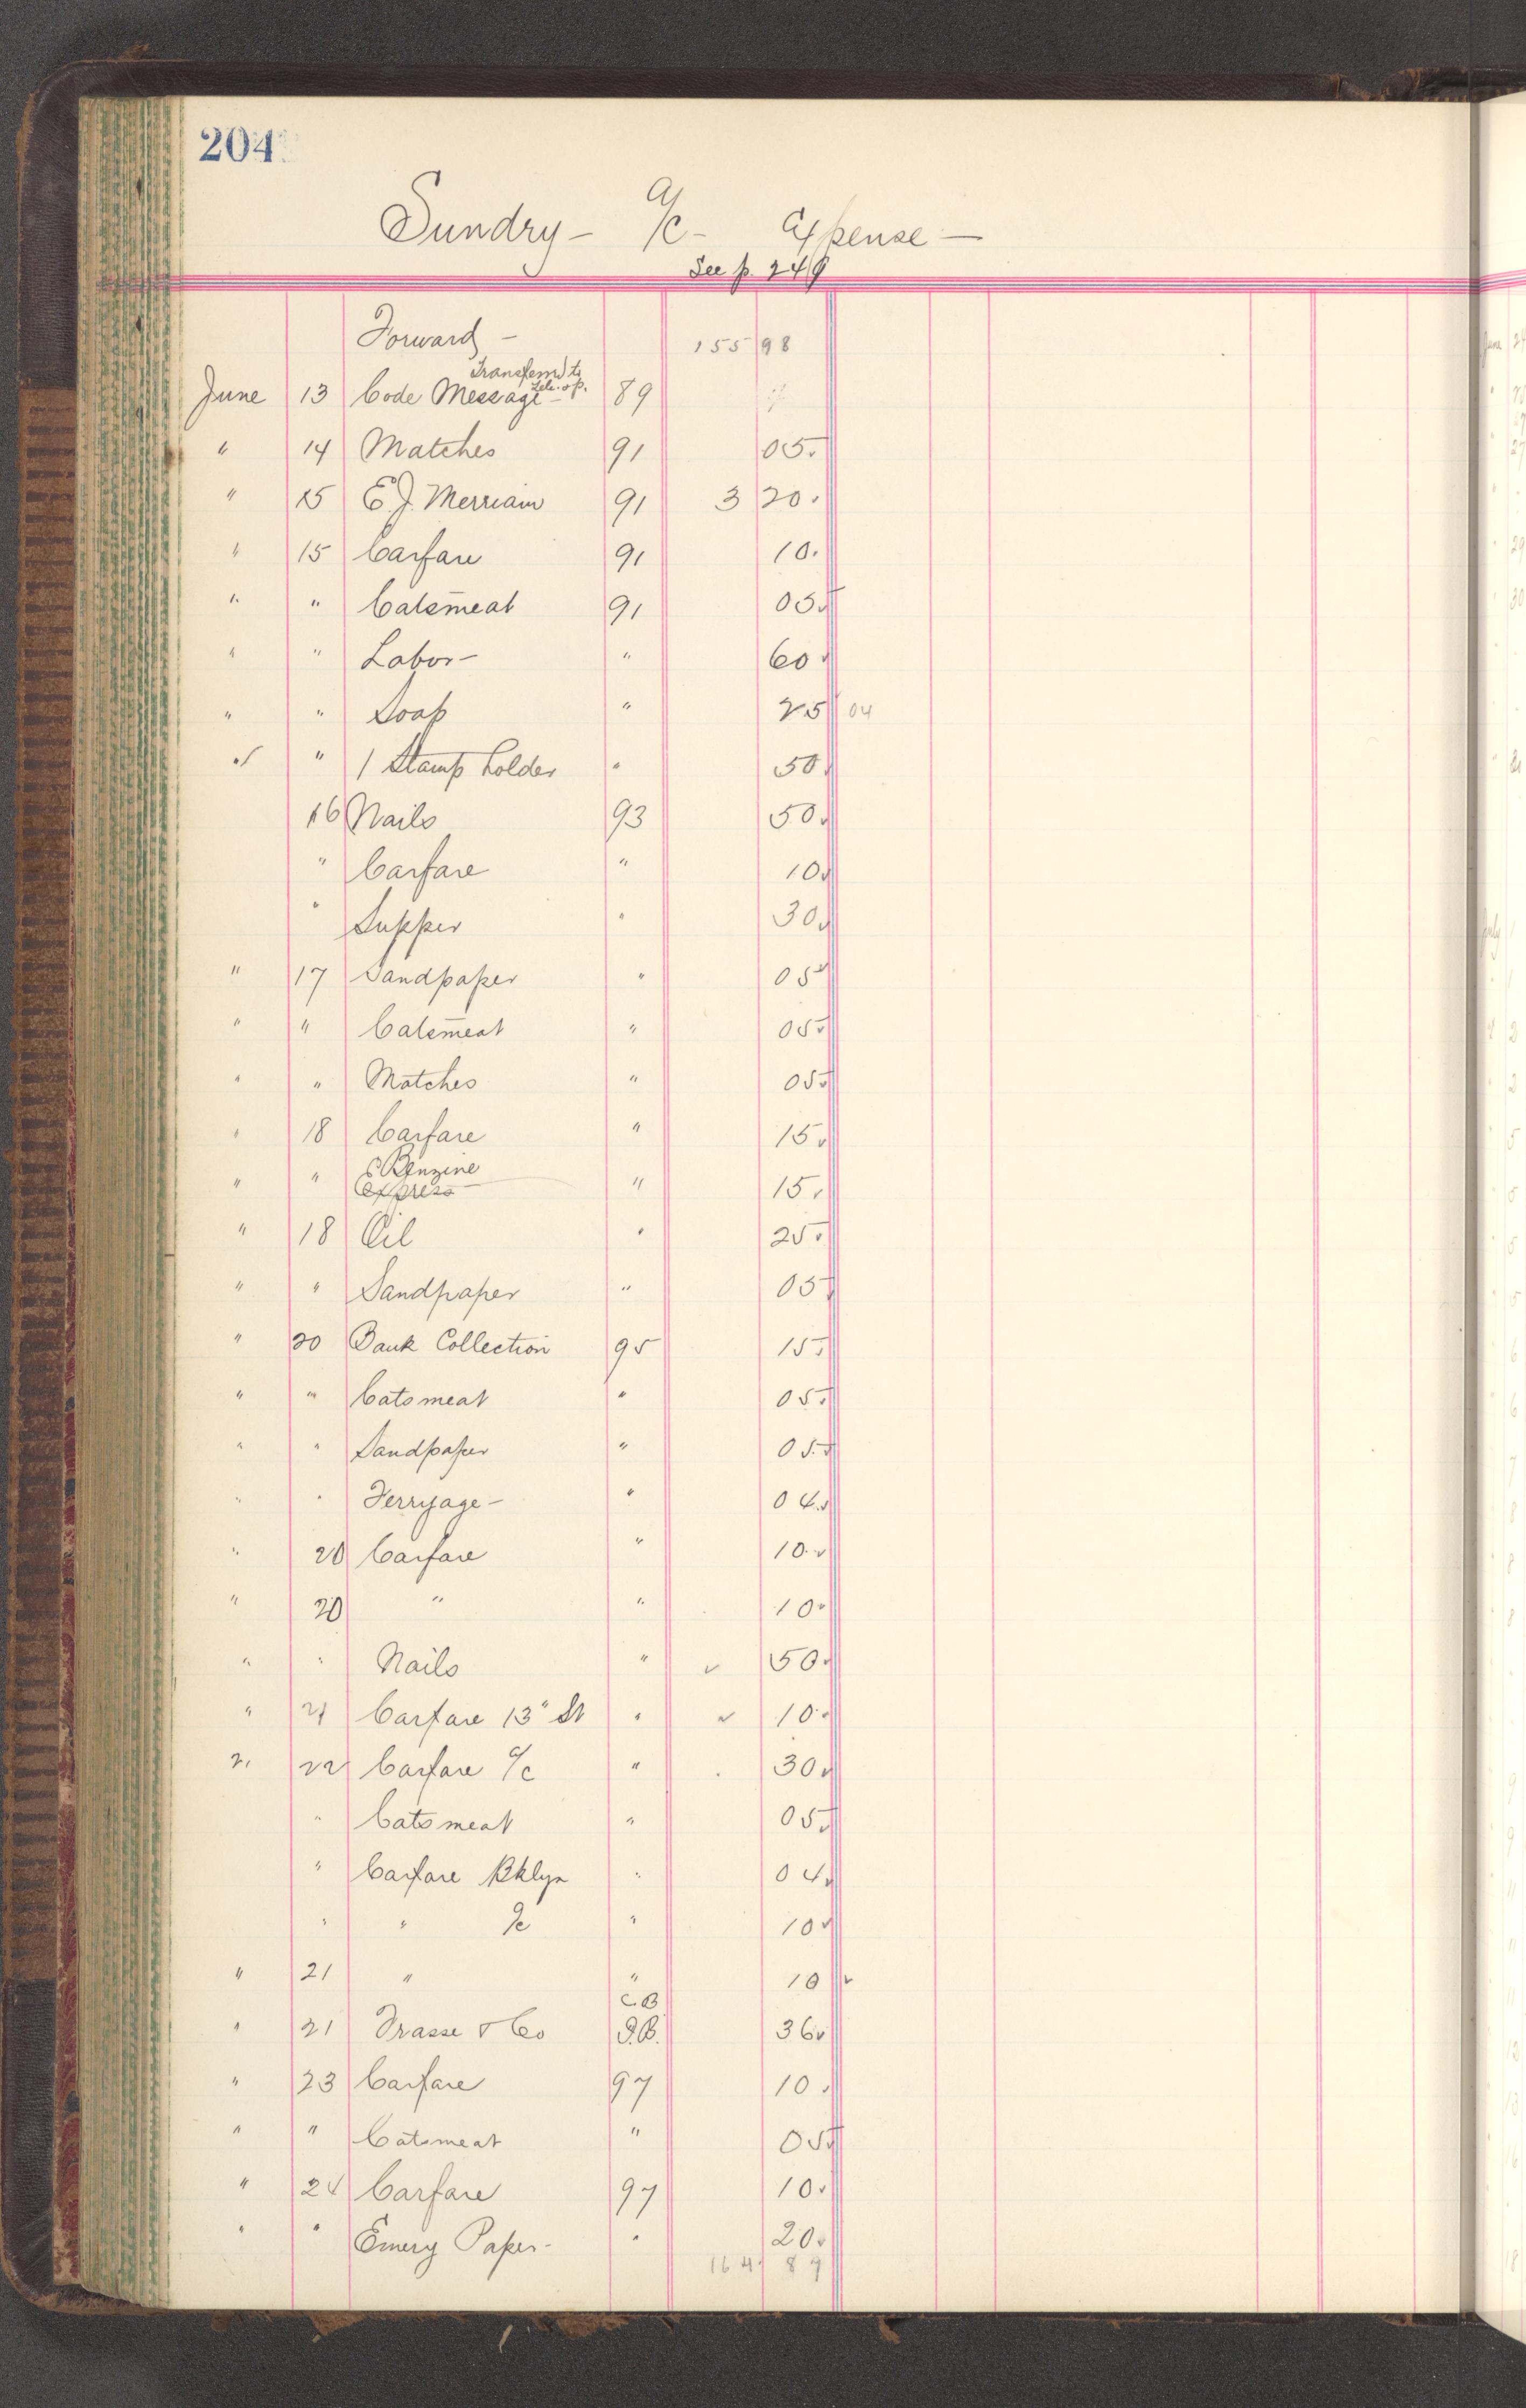 204
Sundry - a/c - Expense -
See p. 249
Forward - 155 98
Transferred to
Tele. op.
June 13 Code Message - 89
" 14 Matches 91 05
" 15 E. J. Merriam 91 3 20
" 15 Carfare 91 10
" " Catsmeat 91 05
" " Labor - " 60
" " Soap " 25 04
" " 1 Stamp holder " 50
16 Nails 93 50
" Carfare " 10
" Supper " 30
" 17 Sandpaper " 05
" " Catsmeat " 05
" " Matches " 05
" 18 Carfare " 15
Benzine
" " Express " 15
" 18 Oil " 25
" " Sandpaper " 05
" 20 Bank Collection 95 15
" " Catsmeat " 05
" " Sandpaper " 05
" " Ferryage - " 04
" 20 Carfare " 10
" 20 " " 10
" " Nails " ✓ 50
" 21 Carfare 13" St " ✓ 10
" 22 Carfare a/c " 30
" Catsmeat " 05
" Carfare Bklyn " 04
" " a/c " 10
" 21 " " 10
C.B
" 21 Frasse & Co P.B. 36
" 23 Carfare 97 10
" " Catsmeat " 05
" 24 Carfare 97 10
" " Emery Paper - " 20
164 89